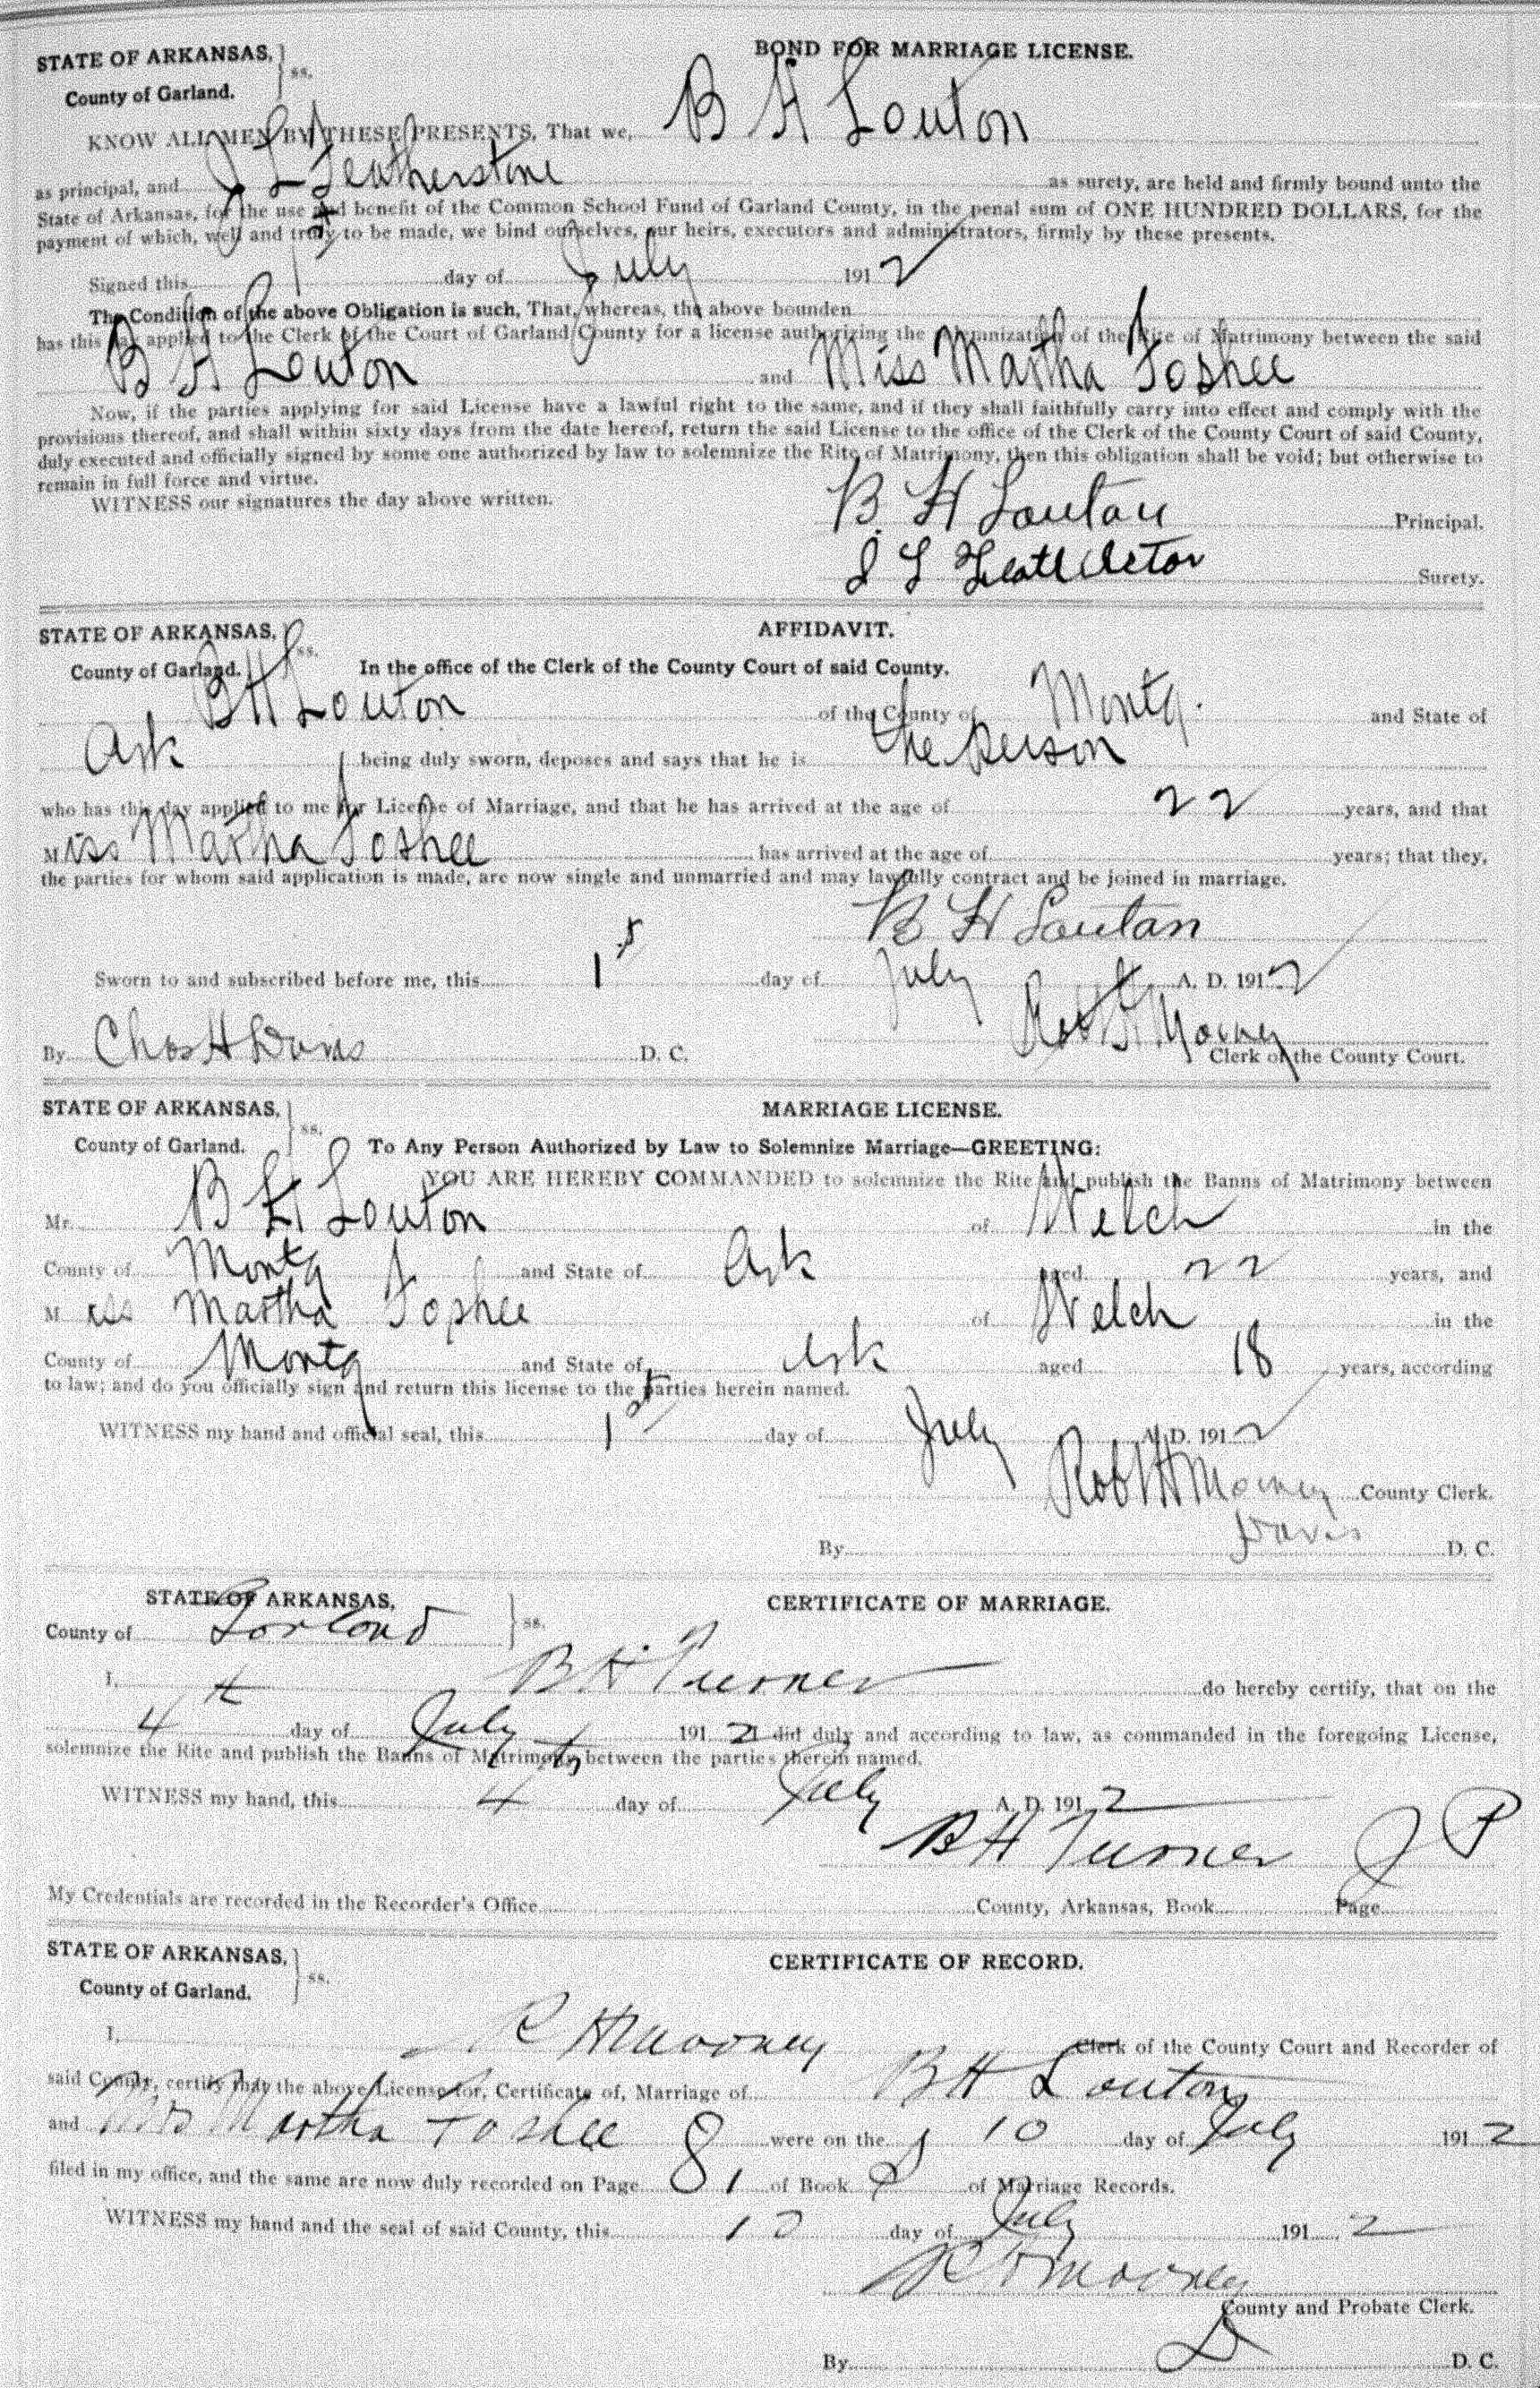 STATE OF ARKANSAS, } ss. BOND FOR MARRIAGE LICENSE.
County of Garland.
KNOW ALL MEN BY THESE PRESENTS, That we, B H Louton
as principal, and J L Featherstone as surety, are held and firmly bound unto the
State of Arkansas, for the use and benefit of the Common School Fund of Garland County, in the penal sum of ONE HUNDRED DOLLARS, for the
payment of which, well and truly to be made, we bind ourselves, our heirs, executors and administrators, firmly by these presents.
Signed this 1st day of July 1912
The Condition of the above Obligation is such, That, whereas, the above bounden
has this day applied to the Clerk of the Court of Garland County for a license authorizing the solemnization of the Rite of Matrimony between the said
B H Louton and Miss Martha Foshee
Now, if the parties applying for said License have a lawful right to the same, and if they shall faithfully carry into effect and comply with the
provisions thereof, and shall within sixty days from the date hereof, return the said License to the office of the Clerk of the County Court of said County,
duly executed and officially signed by some one authorized by law to solemnize the Rite of Matrimony, then this obligation shall be void; but otherwise to
remain in full force and virtue.
WITNESS our signatures the day above written.
B. H Loutan Principal.
J L Surety.
STATE OF ARKANSAS, } ss. AFFIDAVIT.
County of Garland. In the office of the Clerk of the County Court of said County.
B H Louton of the County of Montg. and State of
Ark being duly sworn, deposes and says that he is the person
who has this day applied to me for License of Marriage, and that he has arrived at the age of 22 years, and that
Miss Martha Foshee has arrived at the age of years; that they,
the parties for whom said application is made, are now single and unmarried and may lawfully contract and be joined in marriage.
B H Loutan
Sworn to and subscribed before me, this 1st day of July A. D. 1912
Robt H Mooney
By Chas H Davis D. C. Clerk of the County Court.
STATE OF ARKANSAS, } ss. MARRIAGE LICENSE.
County of Garland. To Any Person Authorized by Law to Solemnize Marriage—GREETING:
YOU ARE HEREBY COMMANDED to solemnize the Rite and publish the Banns of Matrimony between
Mr. B H Louton of Welch in the
County of Montg and State of Ark aged 22 years, and
Miss Martha Foshee of Welch in the
County of Montg and State of Ark aged 18 years, according
to law; and do you officially sign and return this license to the parties herein named.
WITNESS my hand and official seal, this 1st day of July A. D. 1912
Robt H Mooney County Clerk.
By Davis D. C.
STATE OF ARKANSAS, } ss. CERTIFICATE OF MARRIAGE.
County of Garland
I, B H Turner do hereby certify, that on the
4th day of July 1912 I did duly and according to law, as commanded in the foregoing License,
solemnize the Rite and publish the Banns of Matrimony between the parties therein named.
WITNESS my hand, this 4th day of July A. D. 1912
B H Turner J P
My Credentials are recorded in the Recorder's Office County, Arkansas, Book Page
STATE OF ARKANSAS, } ss. CERTIFICATE OF RECORD.
County of Garland.
I, R H Mooney Clerk of the County Court and Recorder of
said County, certify that the above License for, Certificate of, Marriage of B H Louton
and Miss Martha Foshee were on the 10 day of July 1912
filed in my office, and the same are now duly recorded on Page 81 of Book S of Marriage Records.
WITNESS my hand and the seal of said County, this 10 day of July 1912
R H Mooney
County and Probate Clerk.
By D D. C.